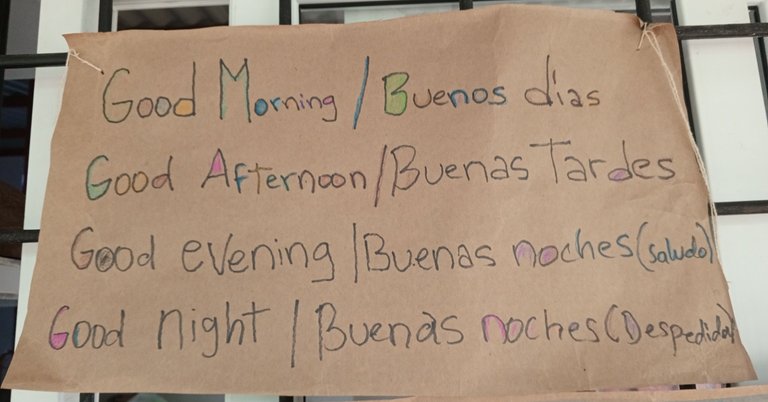 Good Morning / Buenos días
Good Afternoon / Buenas Tardes
Good evening / Buenas noches (saludo)
Good night / Buenas noches (Despedida)